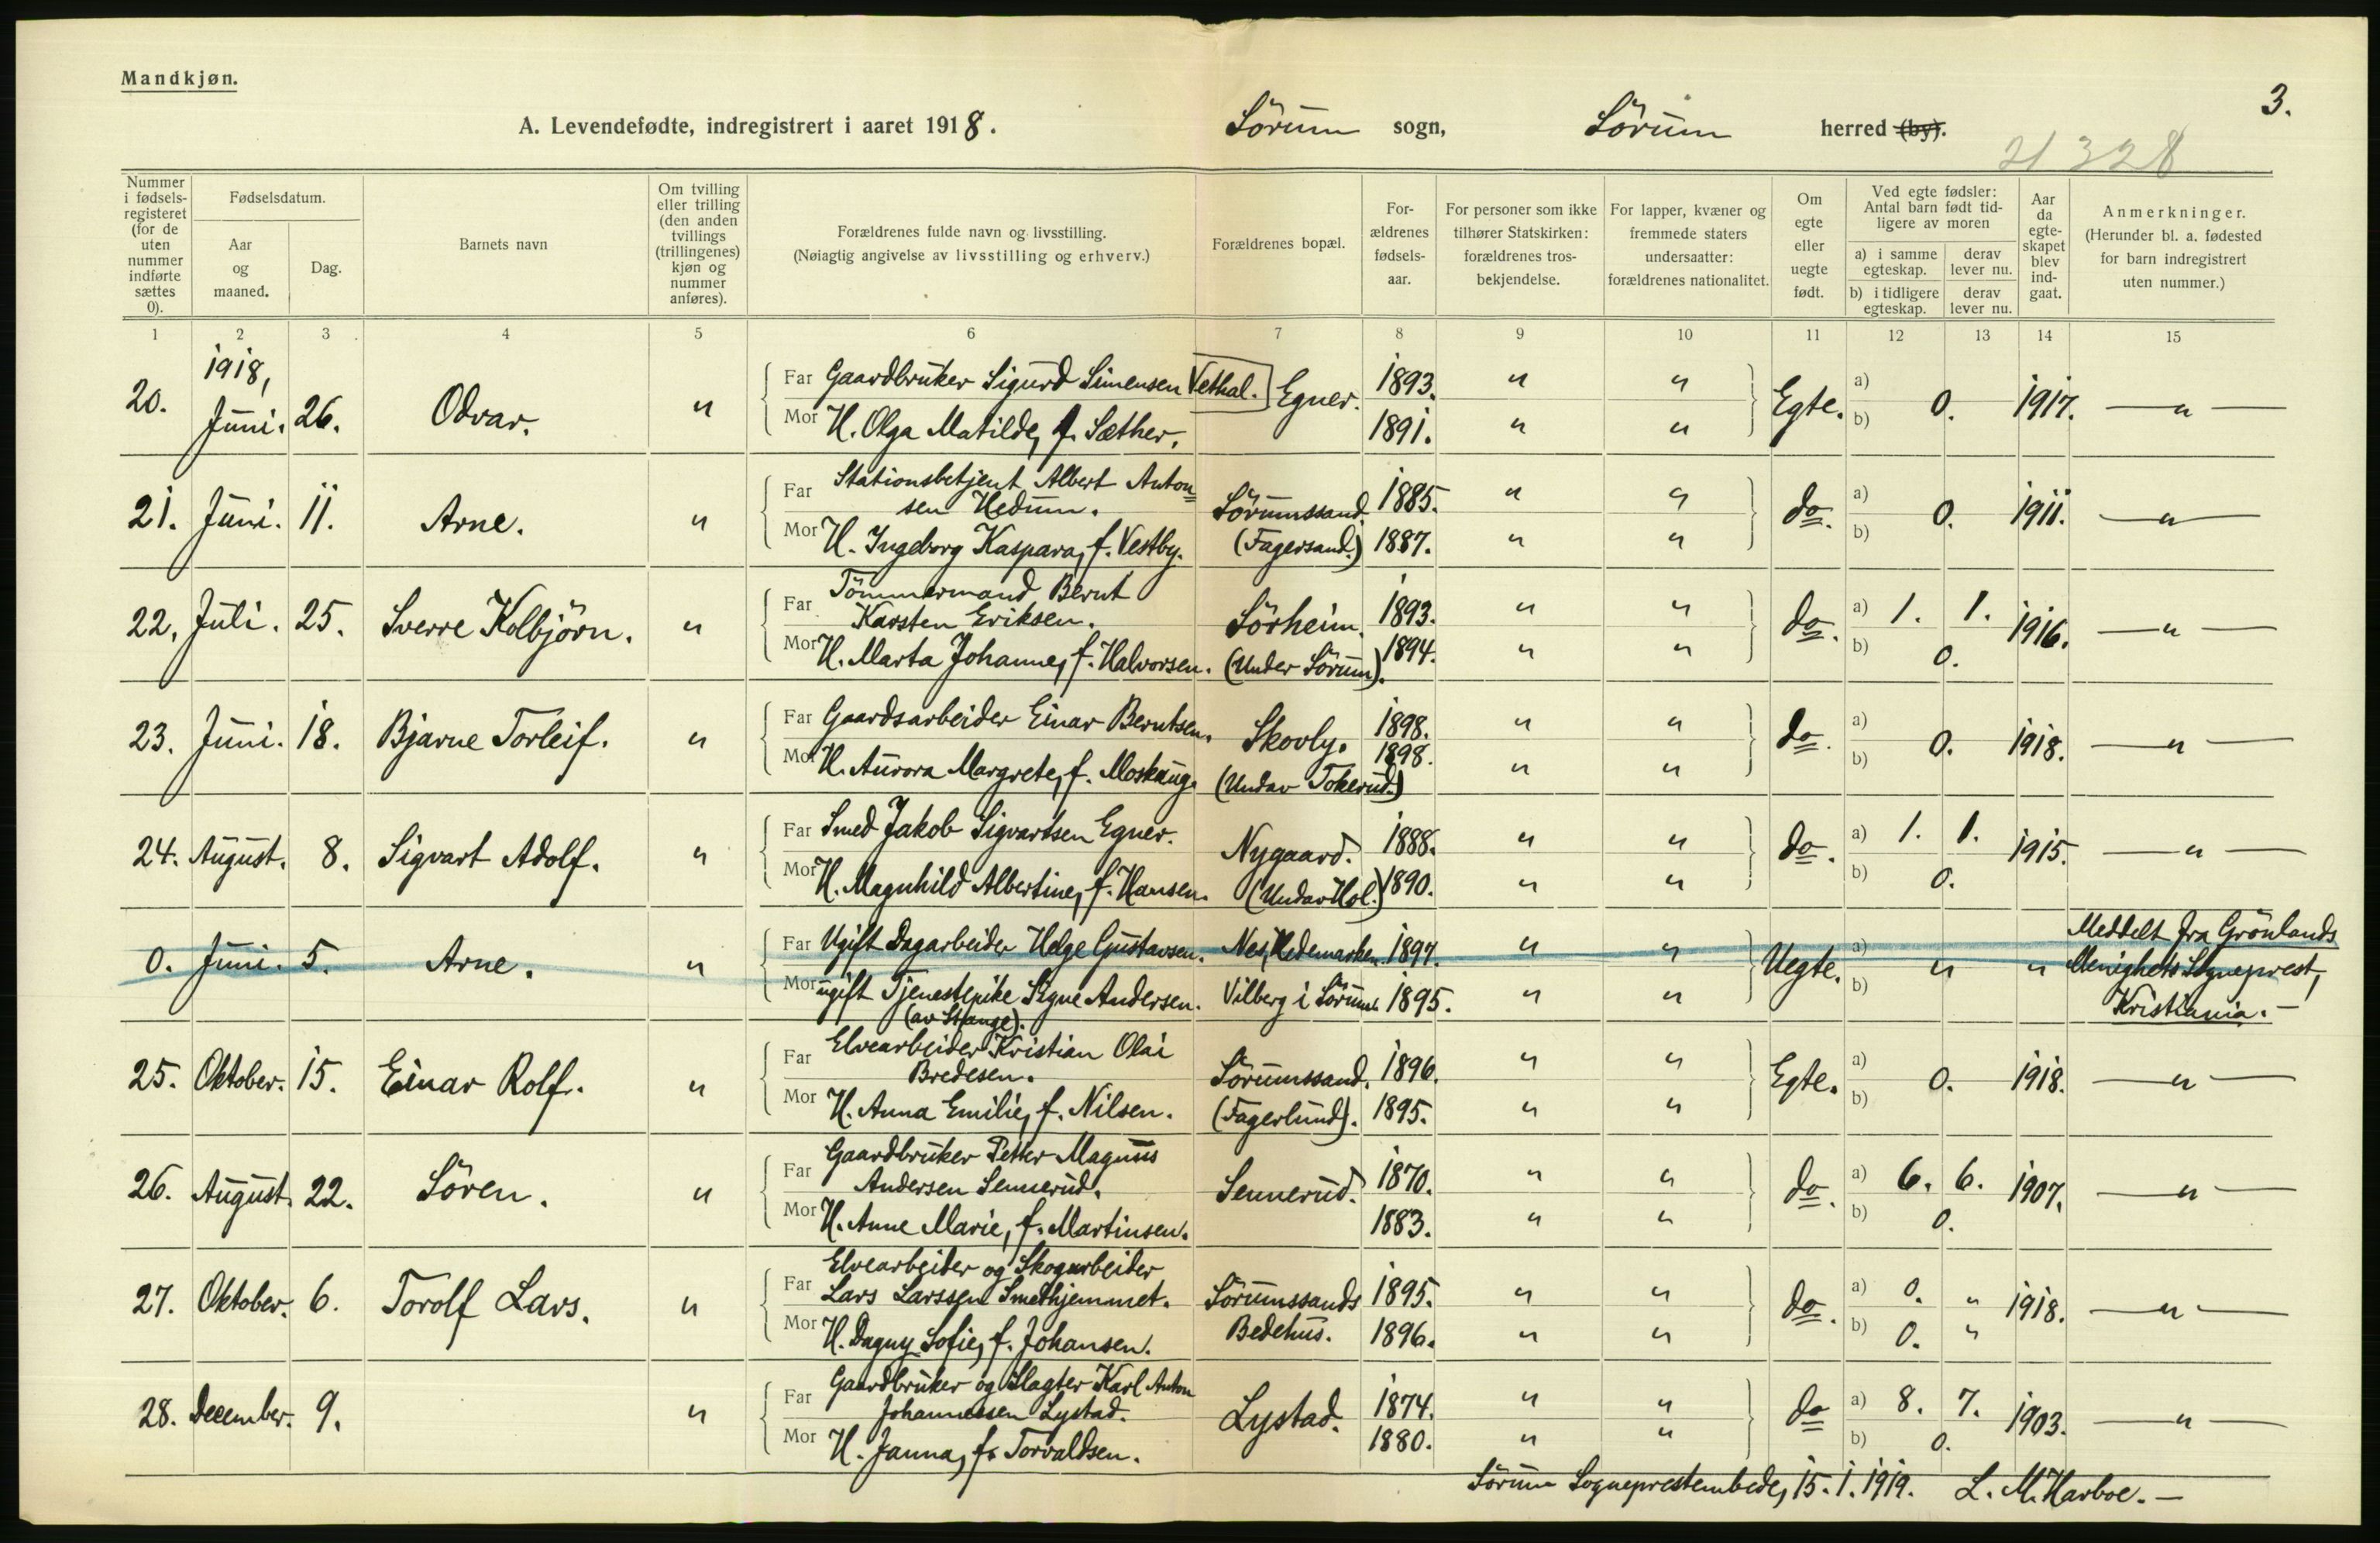 Mandkjøn.
3.
A. Levendefødte, indregistrert i aaret 1918. Sörum sogn, Sörum herred (by).
21328
Nummer i fødsels-registeret (for de uten nummer indførte sættes 0).
Fødselsdatum.
Aar og maaned.
Dag.
Barnets navn
Om tvilling eller trilling (den anden tvillings (trillingenes) kjøn og nummer anføres).
Forældrenes fulde navn og livsstilling.
(Nøiagtig angivelse av livsstilling og erhverv.)
Forældrenes bopæl.
For-ældrenes fødsels-aar.
For personer som ikke tilhører Statskirken: forældrenes tros-bekjendelse.
For lapper, kvæner og fremmede staters undersaatter: forældrenes nationalitet.
Om egte eller uegte født.
Ved egte fødsler: Antal barn født tid-ligere av moren
a) i samme egteskap.
derav lever nu.
b) i tidligere egteskap.
derav lever nu.
Aar da egte-skapet blev ind-gaat.
Anmerkninger.
(Herunder bl. a. fødested for barn indregistrert uten nummer.)
1 2 3 4 5 6 7 8 9 10 11 12 13 14 15
1918,
20. Juni. 26. Odvar. " Far Gaardbruker Sigurd Simensen Vethal. Egner. 1893. " " Egte. a) b) 0. 1917. — " —
Mor H. Olga Matilde, f. Sæther. 1891. " "
21. Juni. 11. Arne. " Far Stationsbetjent Albert Anton=
sen Hedum. Sörumssand. 1885. " " do. a) b) 0. 1911. — " —
Mor H. Ingeborg Kaspara, f. Vestby. (Fagersand.) 1887. " "
22. Juli. 25. Sverre Kolbjörn. " Far Tömmermand Bernt
Karsten Eriksen. Sörheim. 1893. " " do. a) 1. 1. 1916. — " —
Mor H. Marta Johanne, f. Halvorsen. (Under Sörum). 1894. " " b) 0.
23. Juni. 18. Bjarne Torleif. " Far Gaardsarbeider Einar Berntsen. Skovly. 1898. " " do. a) b) 0. 1918. — " —
Mor H. Aurora Margrete, f. Moskaug. (Undar Tokerud.) 1898. " "
24. August. 8. Sigvart Adolf. " Far Smed Jakob Sigvartsen Egner. Nygaard. 1888. " " do. a) 1. 1. 1915. — " —
Mor H. Magnhild Albertine, f. Hansen. (Undar Hol.) 1890. " " b) 0.
0. Juni. 5. Arne. " Far Ugift Dagarbeider Helge Gustavsen. Nes, Hedemarken. 1897. " " Uegte. a) b) " " Meddelt fra Grönlands
Mor ugift Tjenestepike Signe Andersen. Vilberg i Sörum. 1895. " " Menighets Sogneprest,
(av Stange). Kristiania. —
25. Oktober. 15. Einar Rolf. " Far Elvearbeider Kristian Olai
Bredesen. Sörumssand. 1896. " " Egte. a) b) 0. 1918. — " —
Mor H. Anna Emilie, f. Nilsen. (Fagerlund). 1895. " "
26. August. 22. Sören. " Far Gaardbruker Petter Magnus
Andersen Sennerud. Sennerud. 1870. " " do. a) 6. 6. 1907. — " —
Mor H. Anne Marie, f. Martinsen. 1883. " " b) 0.
27. Oktober. 6. Torolf Lars. " Far Elvearbeider og Skogarbeider
Lars Larssen Smedhjemmet. Sörumssands 1895. " " do. a) 0. " 1918. — " —
Mor H. Dagny Sofie, f. Johansen. Bedehus. 1896. " " b) 0. "
28. December. 9. " Far Gaardbruker og Slagter Karl Anton
Johannessen Lystad. Lystad. 1874. " " do a) 8. 7. 1903. — " —
Mor H. Janna, f. Torvaldsen. 1880. " " b) 0.
Sörum Sogneprestembede, 15.1.1919. L. M. Harboe. —